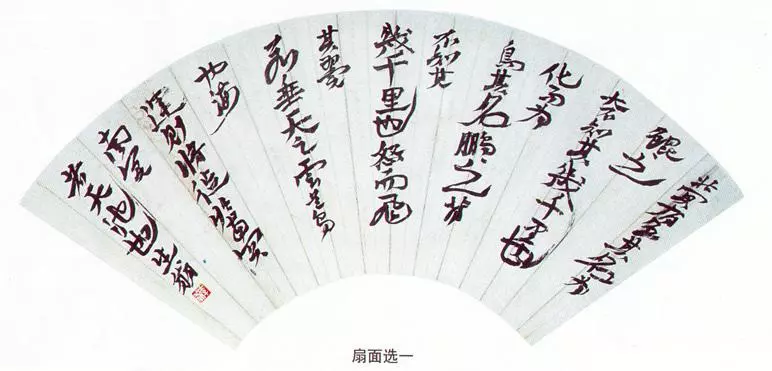 北冥有魚其名为
鲲々之
大不知其幾千里也
化而为
鳥其名鹏々之背
不知其
幾千里也怒而飛
其翼
若垂天之雲是鸟
也海
運则将徙於南冥
南冥
者天池也生翁
扇面选一